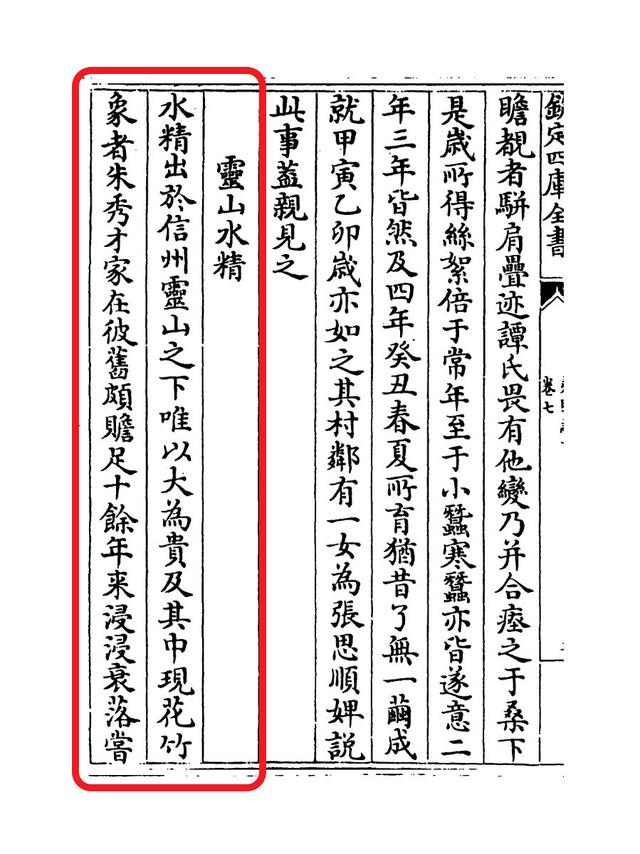 欽定四庫全書
卷七
瞻覩者駢肩疊迹譚氏畏有他變乃并合瘞之于桑下
是歲所得絲絮倍于常年至于小蠶寒蠶亦皆遂意二
年三年皆然及四年癸丑春夏所育猶昔了無一繭成
就甲寅乙卯歲亦如之其村鄰有一女為張思順婢説
此事蓋親見之
靈山水精
水精出於信州靈山之下唯以大為貴及其中現花竹
象者朱秀才家在彼舊頗贍足十餘年来浸浸衰落嘗